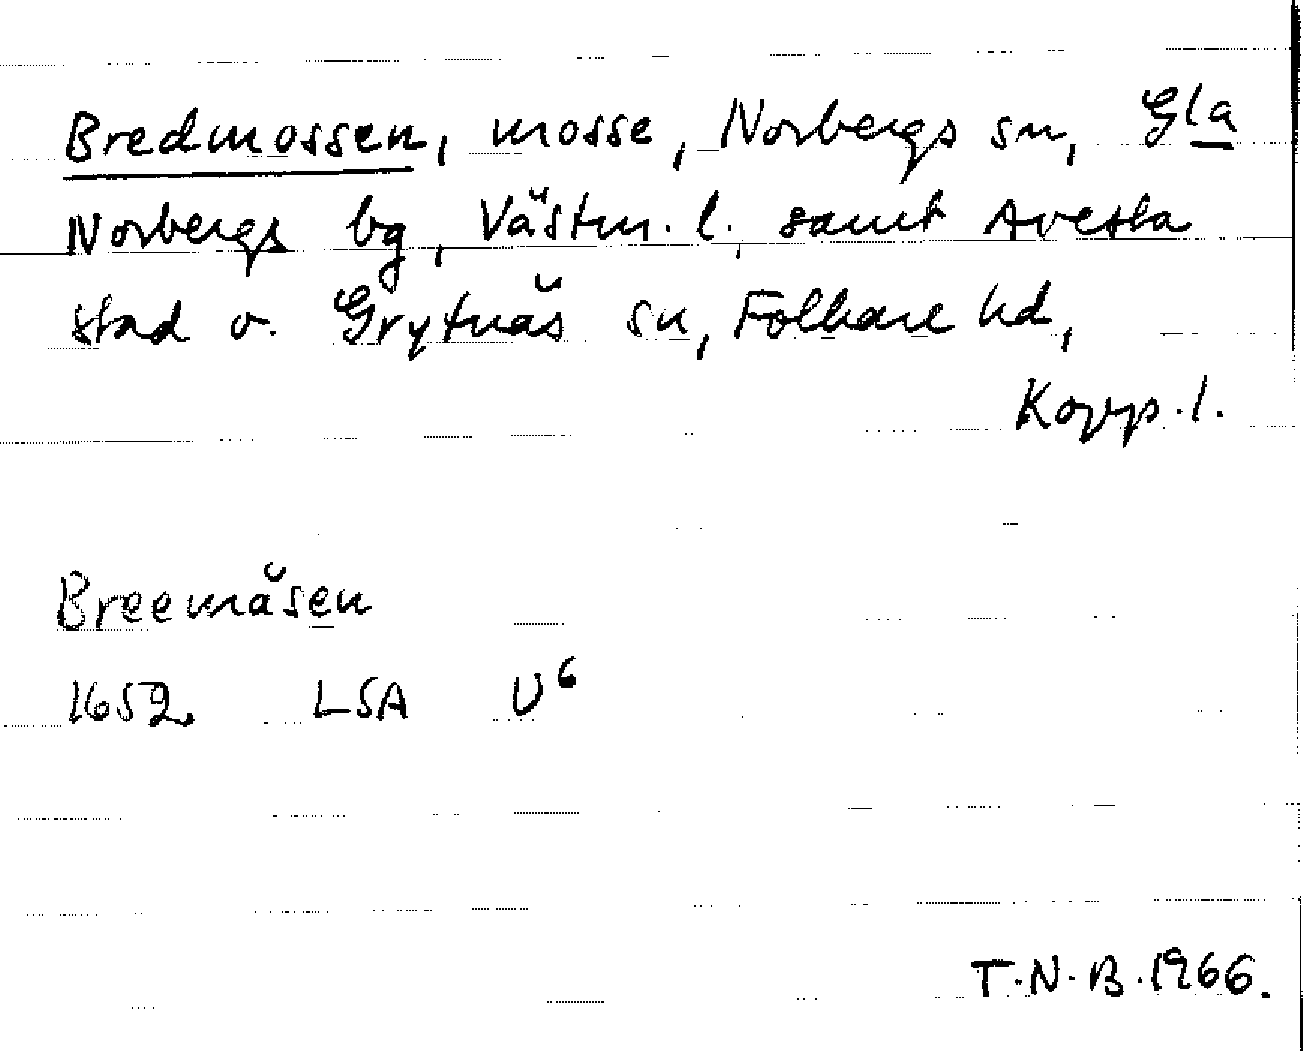 Bredmossen, mosse, Norbergs sn, Gla
Norbergs bg, Västm. l. samt Avesta
stad o. Grytnäs sn, Folkare hd,
Kopp. l.
Breemåsen
1652 LSA U6
T.N.B. 1966.